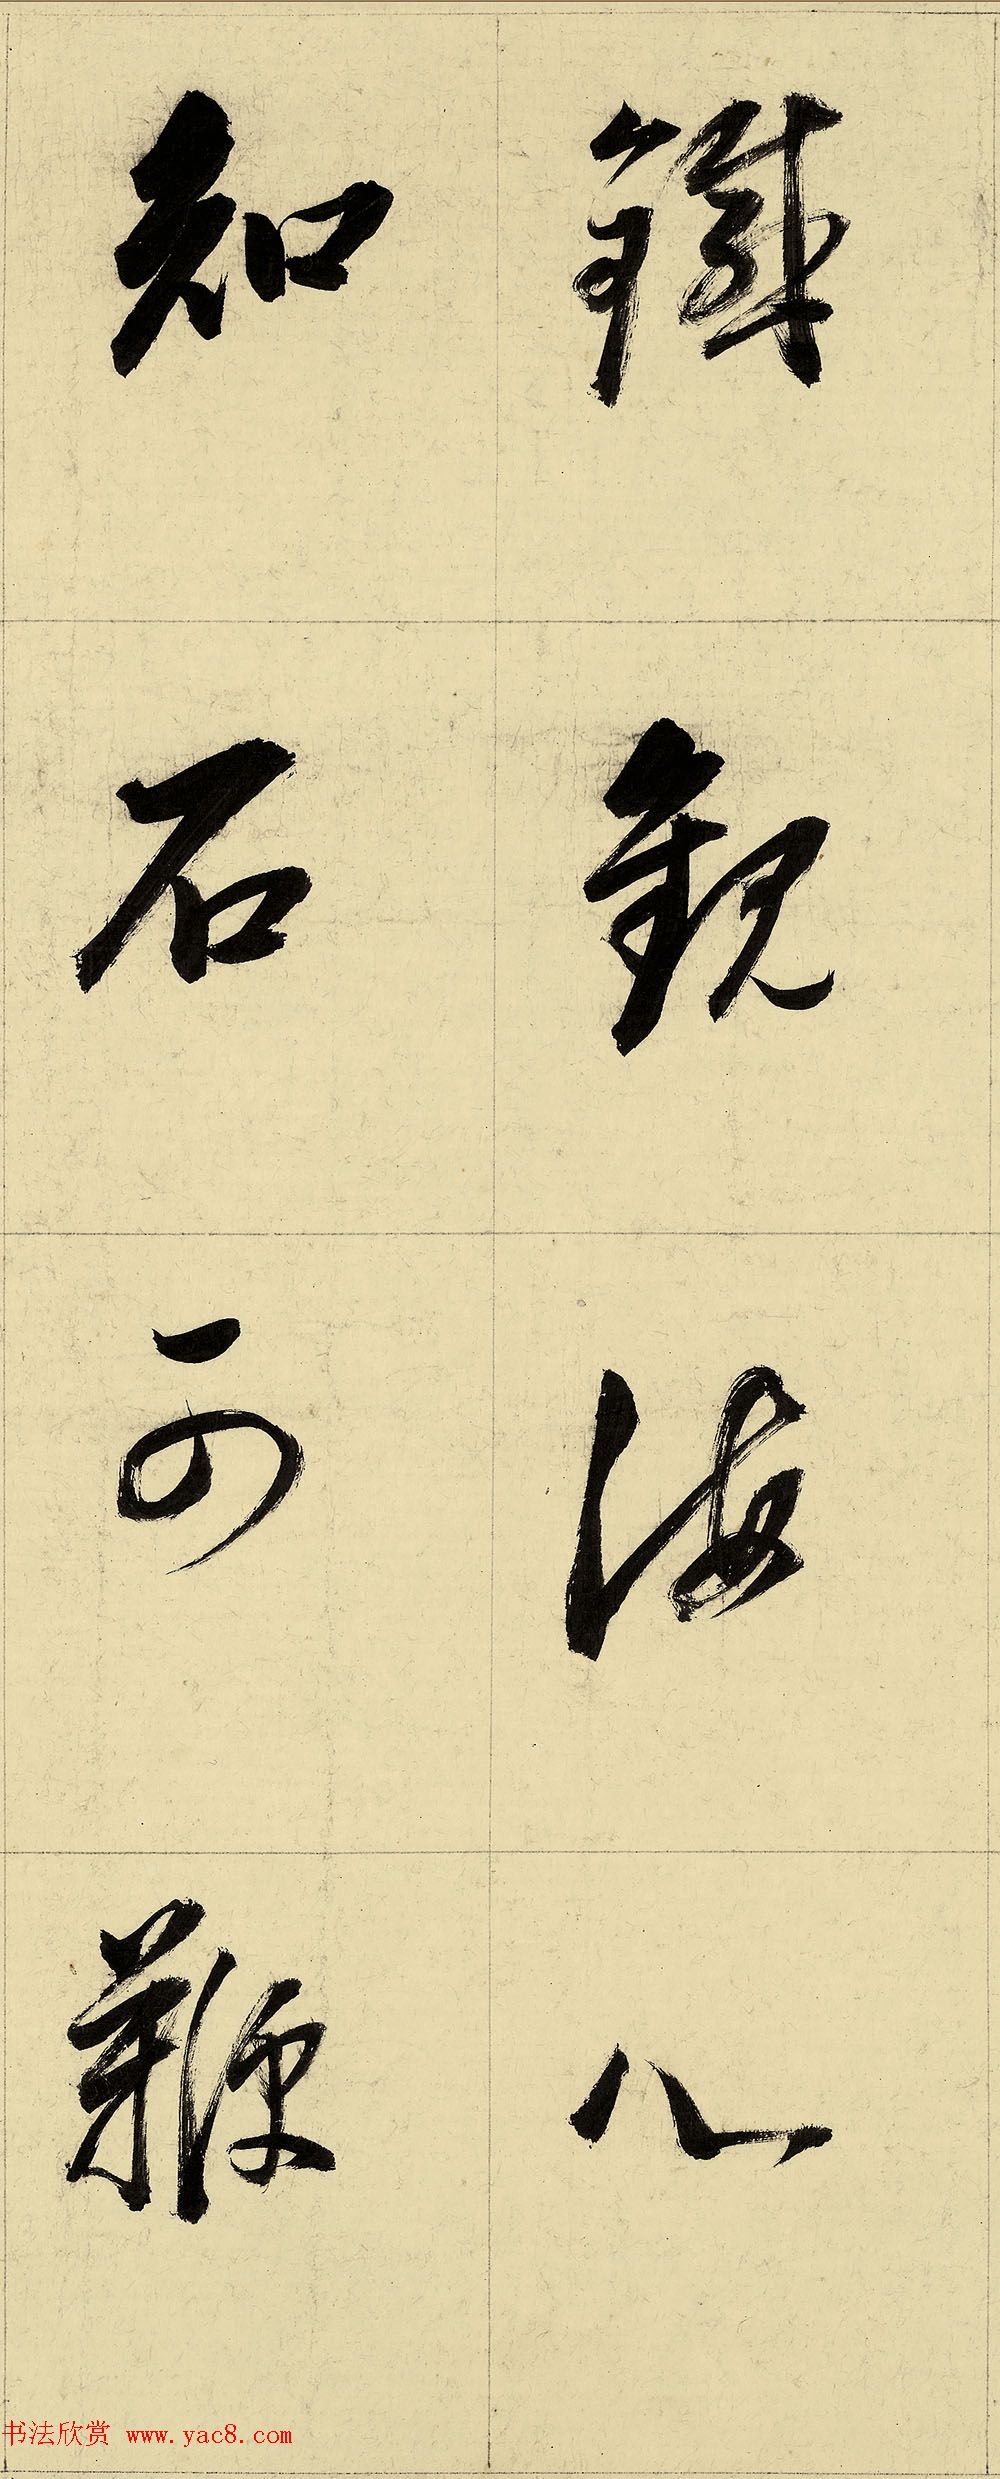 鐵觀海八
知石可鞭
书法欣赏 www.yac8.com